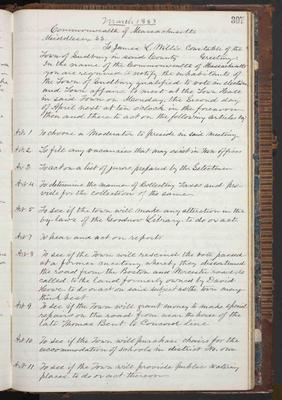 March 1883
307
Commonwealth of Massachusetts
Middlesex SS.
To James L. Willis Constable of the
Town of Sudbury in said County Greeting
In the name of the Commonwealth of Massachusetts
you are required to notify the inhabitants of
the Town of Sudbury qualified to vote in elections
and Town affairs to meet at the Town Hall
in said Town on Monday, the Second day
of April next at ten oclock in the forenoon
then and there to act on the following articles viz
Art 1 To choose a Moderator to preside in said meeting.
Art 2 To fill any vacancies that may exist in Town offices
Art 3 To act on a list of jurors prepared by the Selectmen
Art 4 To determine the manner of Collecting Taxes and pro-
vide for the collection of the same.
Art 5 To see if the town will make any alteration in the
by-laws of the Goodnow Library. to do or act.
Art 7 To hear and act on reports
Art 8 To see if the Town will rescind the vote passed
at a former meeting whereby they discontinued
the road from the Boston and Worcester road so
called to the land formerly owned by David
Howe. to do or act on said subject as the town may
think best
Art 9 To see if the Town will grant money to make special
repairs on the road from near the house of the
late Thomas Bent to Concord line
Art 10 To see if the Town will purchase chairs for the
accommodation of schools in district No. one
Art 11 To see if the Town will provide public watering
places. to do or act thereon